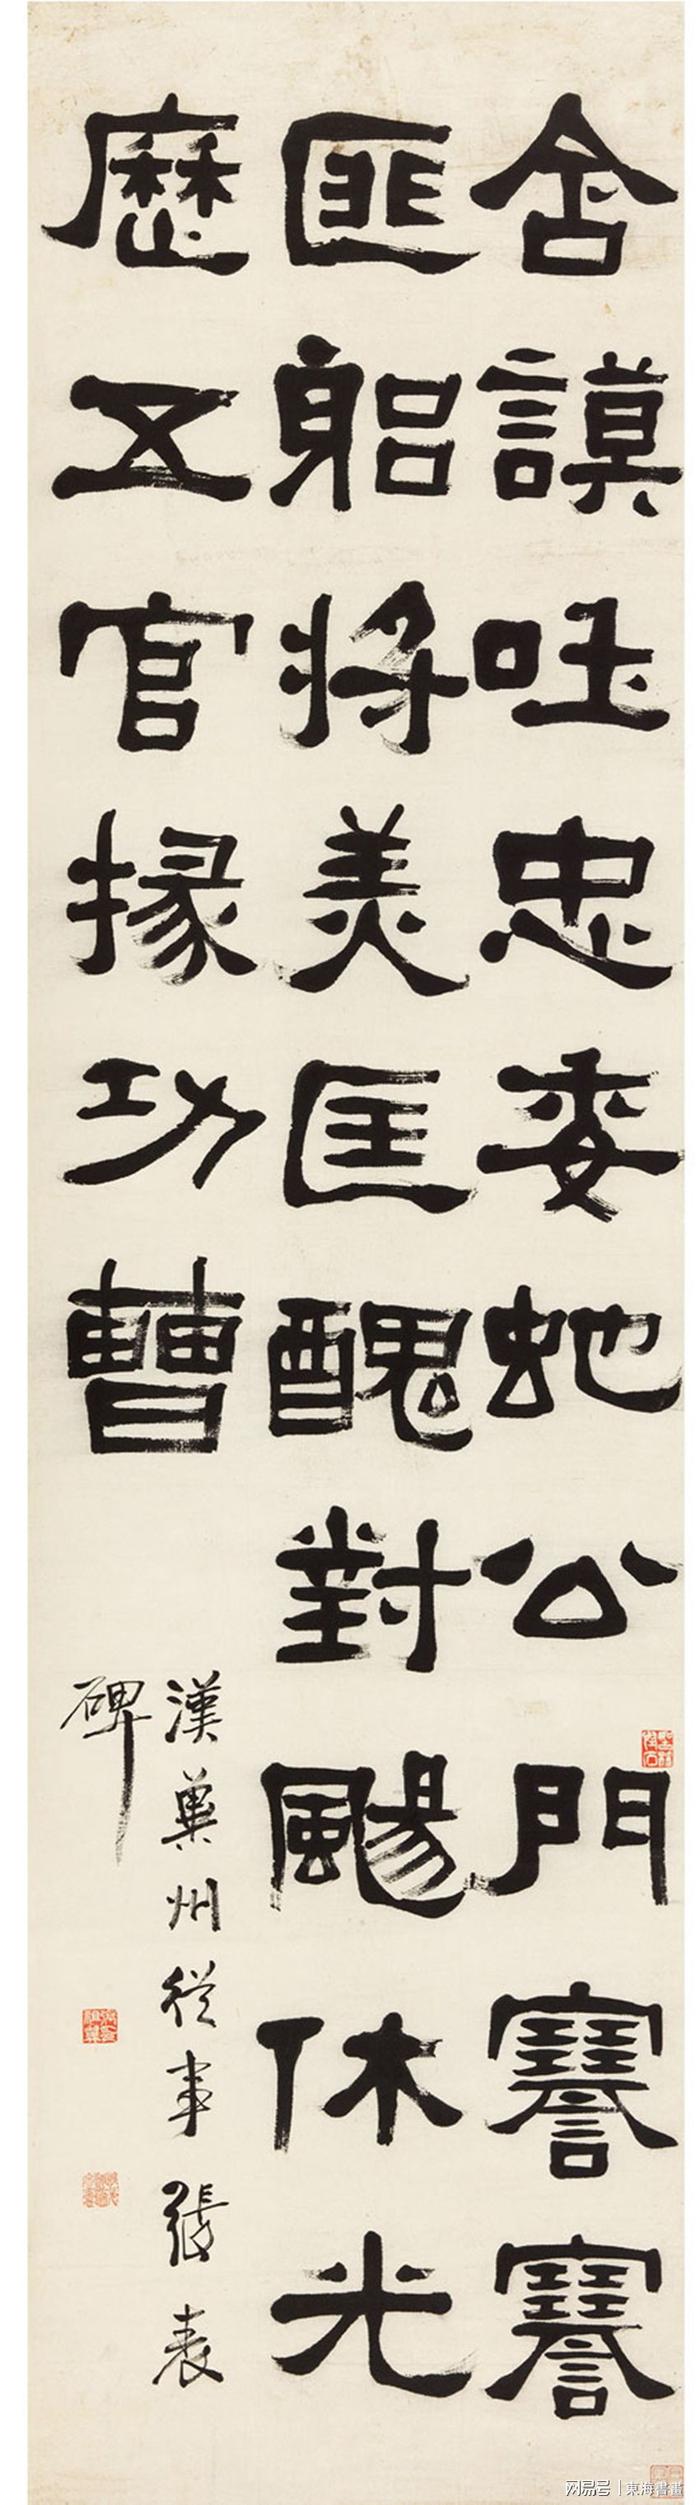 舍謨吐忠委虵公門謇謇
匪躳將美匡醜對颺休光
歷五官掾功曹
漢冀州從事張表
碑
網易号 | 東海書畫